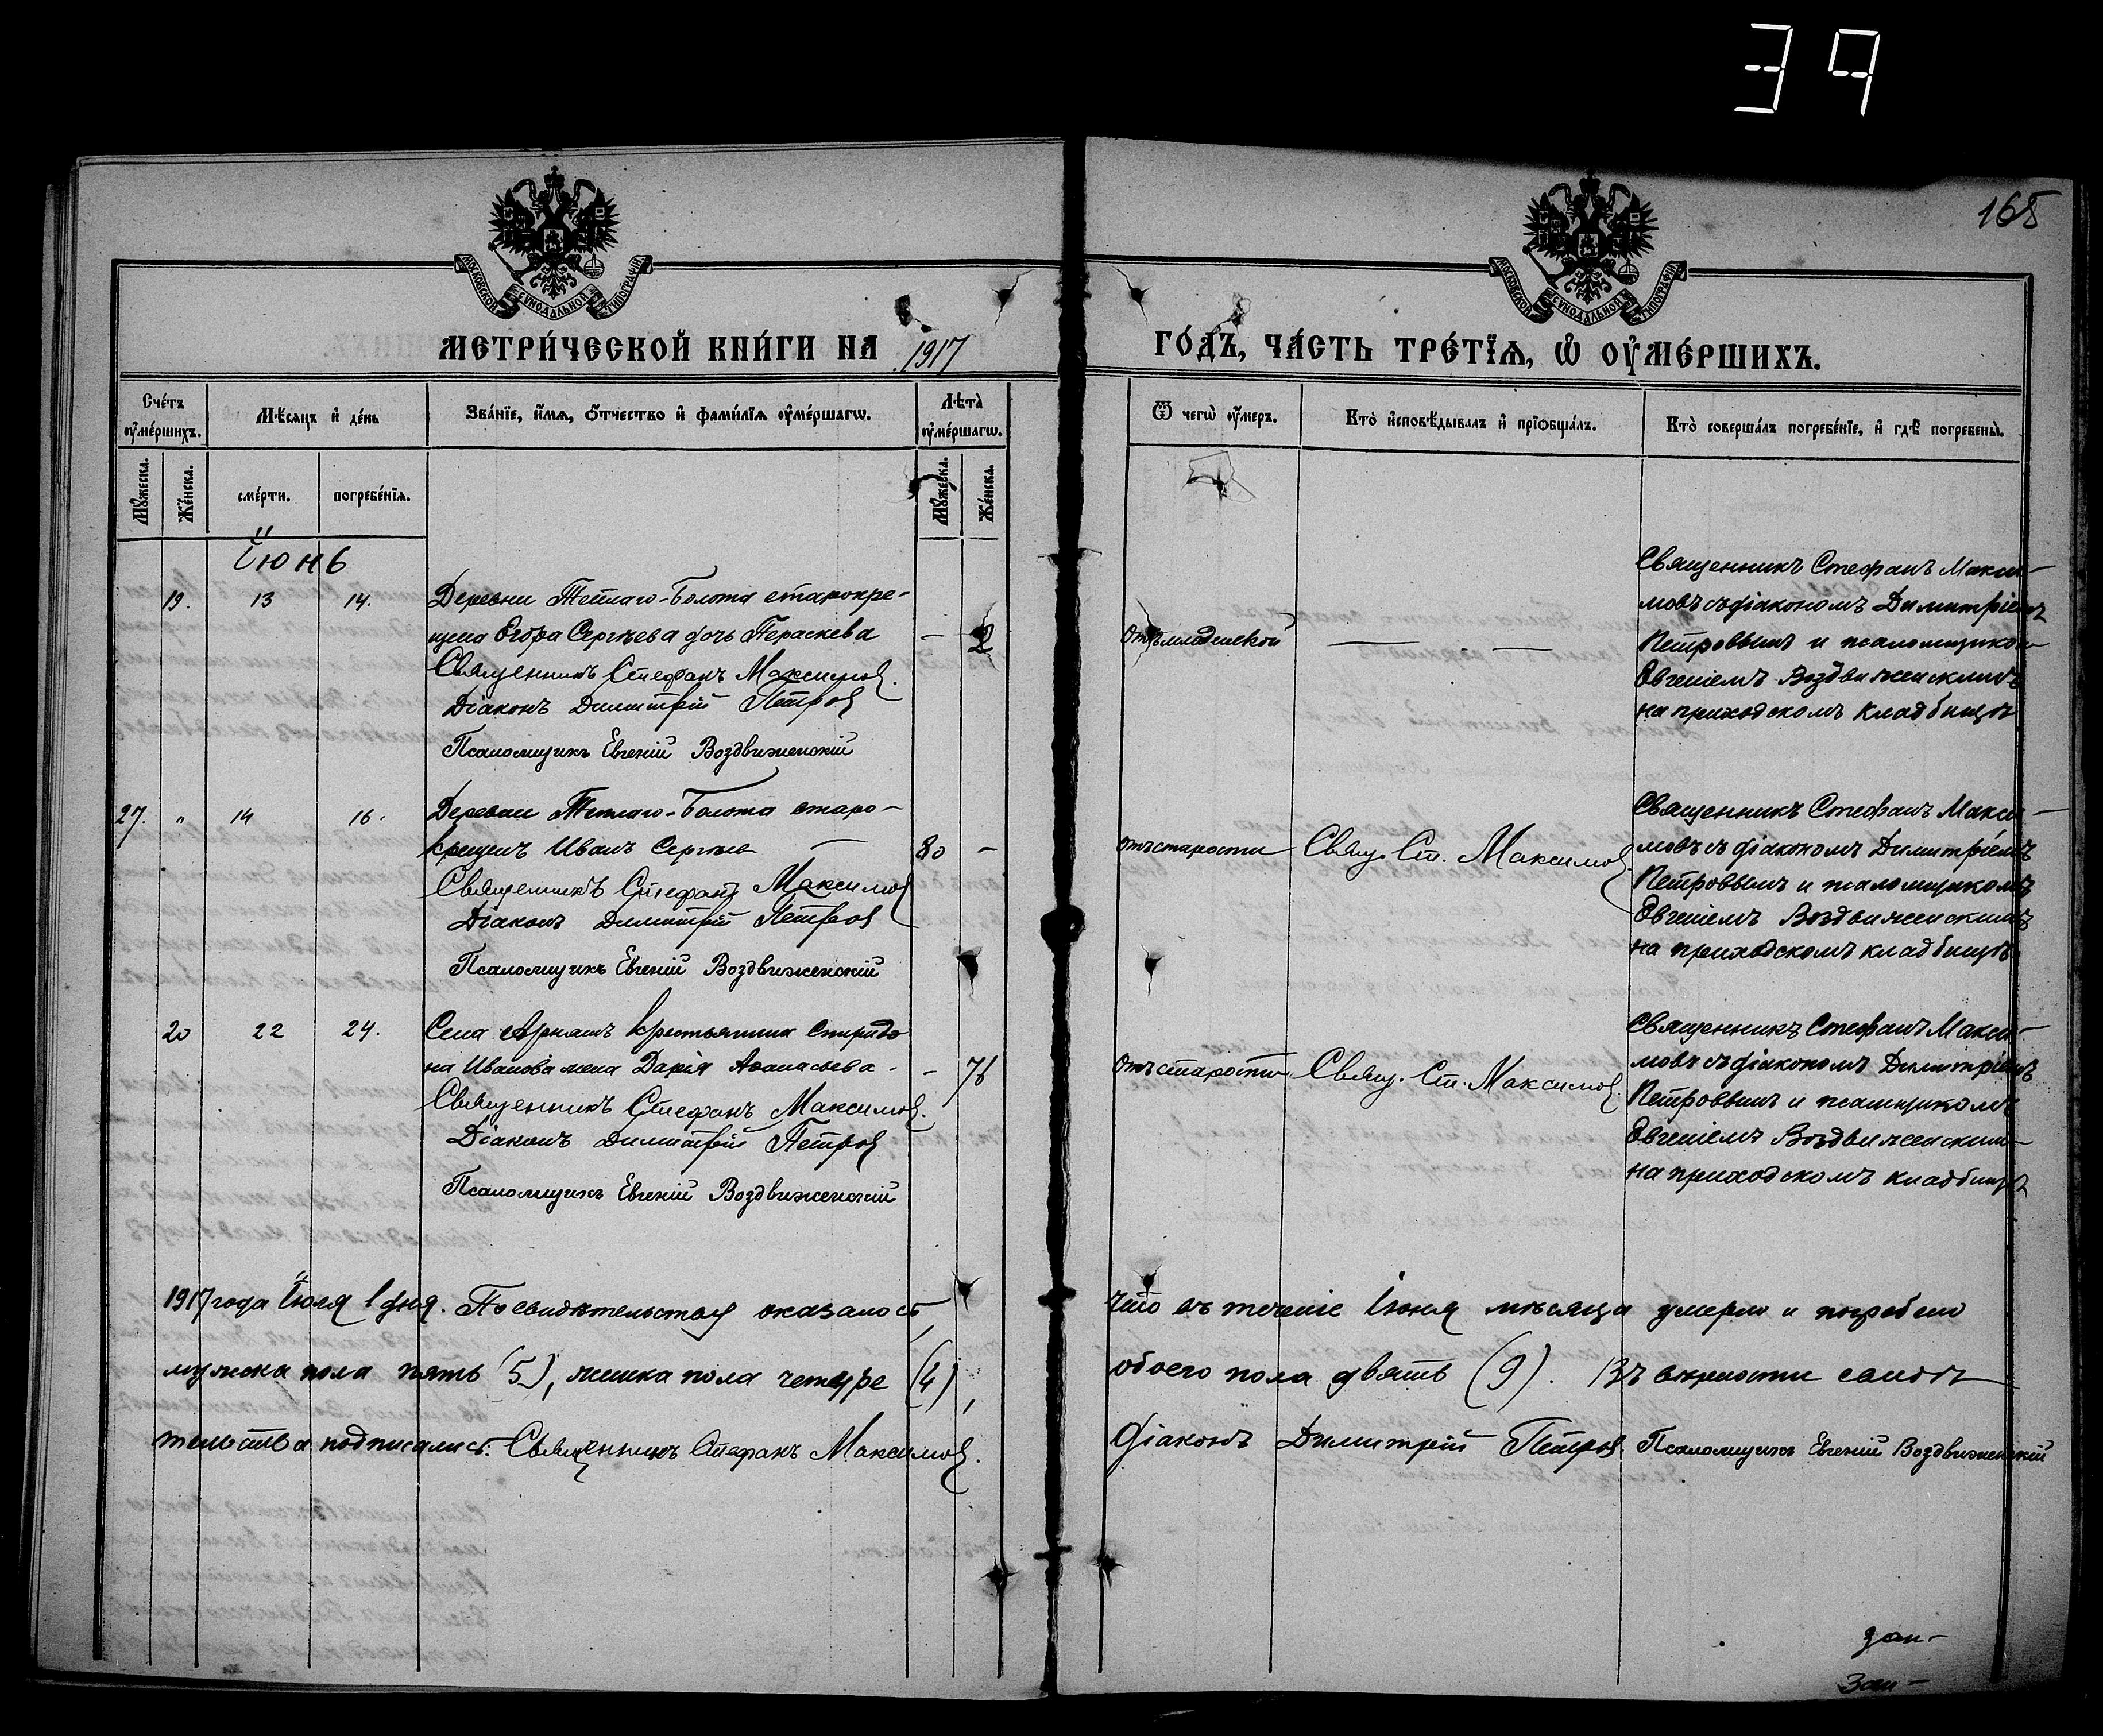 39
165
МОСКОВСКОЙ СѴНОДАЛЬНОЙ ТИПОГРАФІИ
МОСКОВСКОЙ СѴНОДАЛЬНОЙ ТИПОГРАФІИ
МЕТРИ́ЧЕСКОЙ КНИ́ГИ НА 1917 ГО́ДЪ, ЧА́СТЬ ТРЕ́ТЇѦ, Ѡ҆ ОУ҆МЕ́РШИХЪ.
Сче́тъ оу҆ме́ршихъ.
Мѣ́сяцъ и҆ де́нь
Зва́нїе, и҆́мѧ, ѻ҆́тчество и҆ фами́лїѧ оу҆ме́ршагѡ.
Лѣта̀ оу҆ме́ршагѡ.
Ѿ чегѡ̀ оу҆́меръ.
Кто̀ и҆сповѣ́дывалъ и҆ прїѡбща́лъ.
Кто̀ соверша́лъ погребе́нїе, и҆ гдѣ̀ погребены̀.
Мꙋ́жеска.
Же́нска.
сме́рти.
погребе́нїѧ.
Мꙋ́жеска.
Же́нска.
Іюнь
19. 13 14.
Деревни Теплаго-Болота старокре-
щена Егора Сергѣева дочь Параскева — 2
Священникъ Стефанъ Максимов.
Діаконъ Димитрій Петров
Псаломщикъ Евгеній Воздвиженскій
Отъ младенской — —
Священникъ Стефанъ Макси-
мовъ съ діакономъ Димитріемъ
Петровымъ и псаломщиком
Евгеніемъ Воздвиженскимъ
на приходскомъ кладбищѣ
27. " 14 16.
Деревни Теплаго-Болота старо-
крещенъ Иванъ Сергѣев — 80 —
Священникъ Стефанъ Максимов
Діаконъ Димитрій Петров
Псаломщикъ Евгеній Воздвиженскій
отъ старости Свящ. Ст. Максимов.
Священникъ Стефанъ Макси-
мовъ съ діакономъ Димитріемъ
Петровымъ и псаломщикомъ
Евгеніемъ Воздвиженскимъ
на приходскомъ кладбищѣ
20 22 24.
Села крестьянина Спиридо
на Иванова жена Дарія Аѳанасьева - - 76
Священникъ Стефанъ Максимов.
Діаконъ Димитрій Петров
Псаломщикъ Евгеній Воздвиженскій
Отъ старости Свящ. Ст. Максимов.
Священникъ Стефанъ Макси-
мовъ съ діакономъ Димитріемъ
Петровымъ и псаломщикомъ
Евгеніемъ Воздвиженским
на приходскомъ кладбищѣ
1917 года Іюля 1 дня. По свидѣтельству оказалось, что въ теченіе Іюня мѣсяца умерло и погребено
мужска пола пять (5), женска пола четыре (4), обоего пола девять (9). Въ вѣрности свидѣ
тельства подписались: Священникъ Стефанъ Максимов. Діаконъ Димитрій Петров Псаломщикъ Евгеній Воздвиженскій